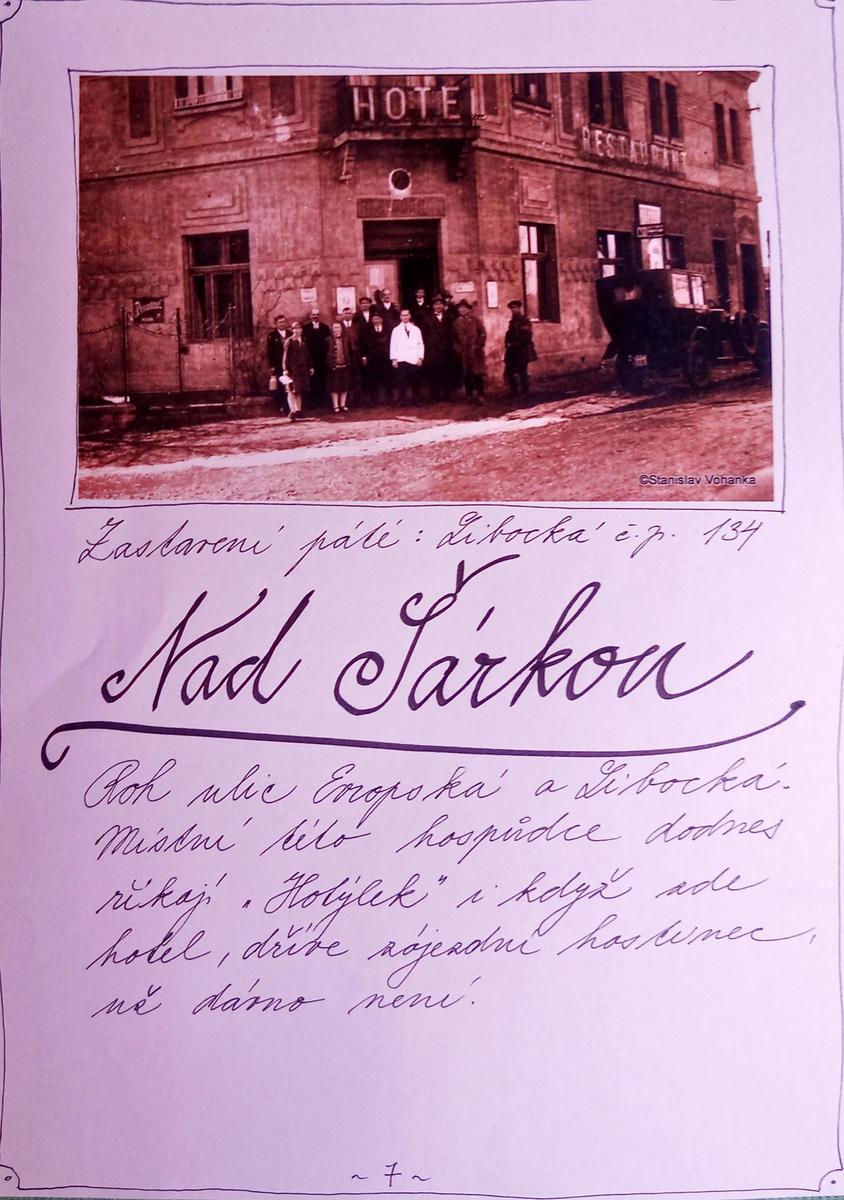 HOTEL
RESTAURANT
©Stanislav Vohanka
Zastavení páté: Libocká č.p. 134
Nad Šárkou
Roh ulic Evropská a Libocká.
Místní této hospůdce dodnes
říkají „Hotýlek" i když zde
hotel, dříve zájezdní hostinec,
už dávno není.
~ 7 ~